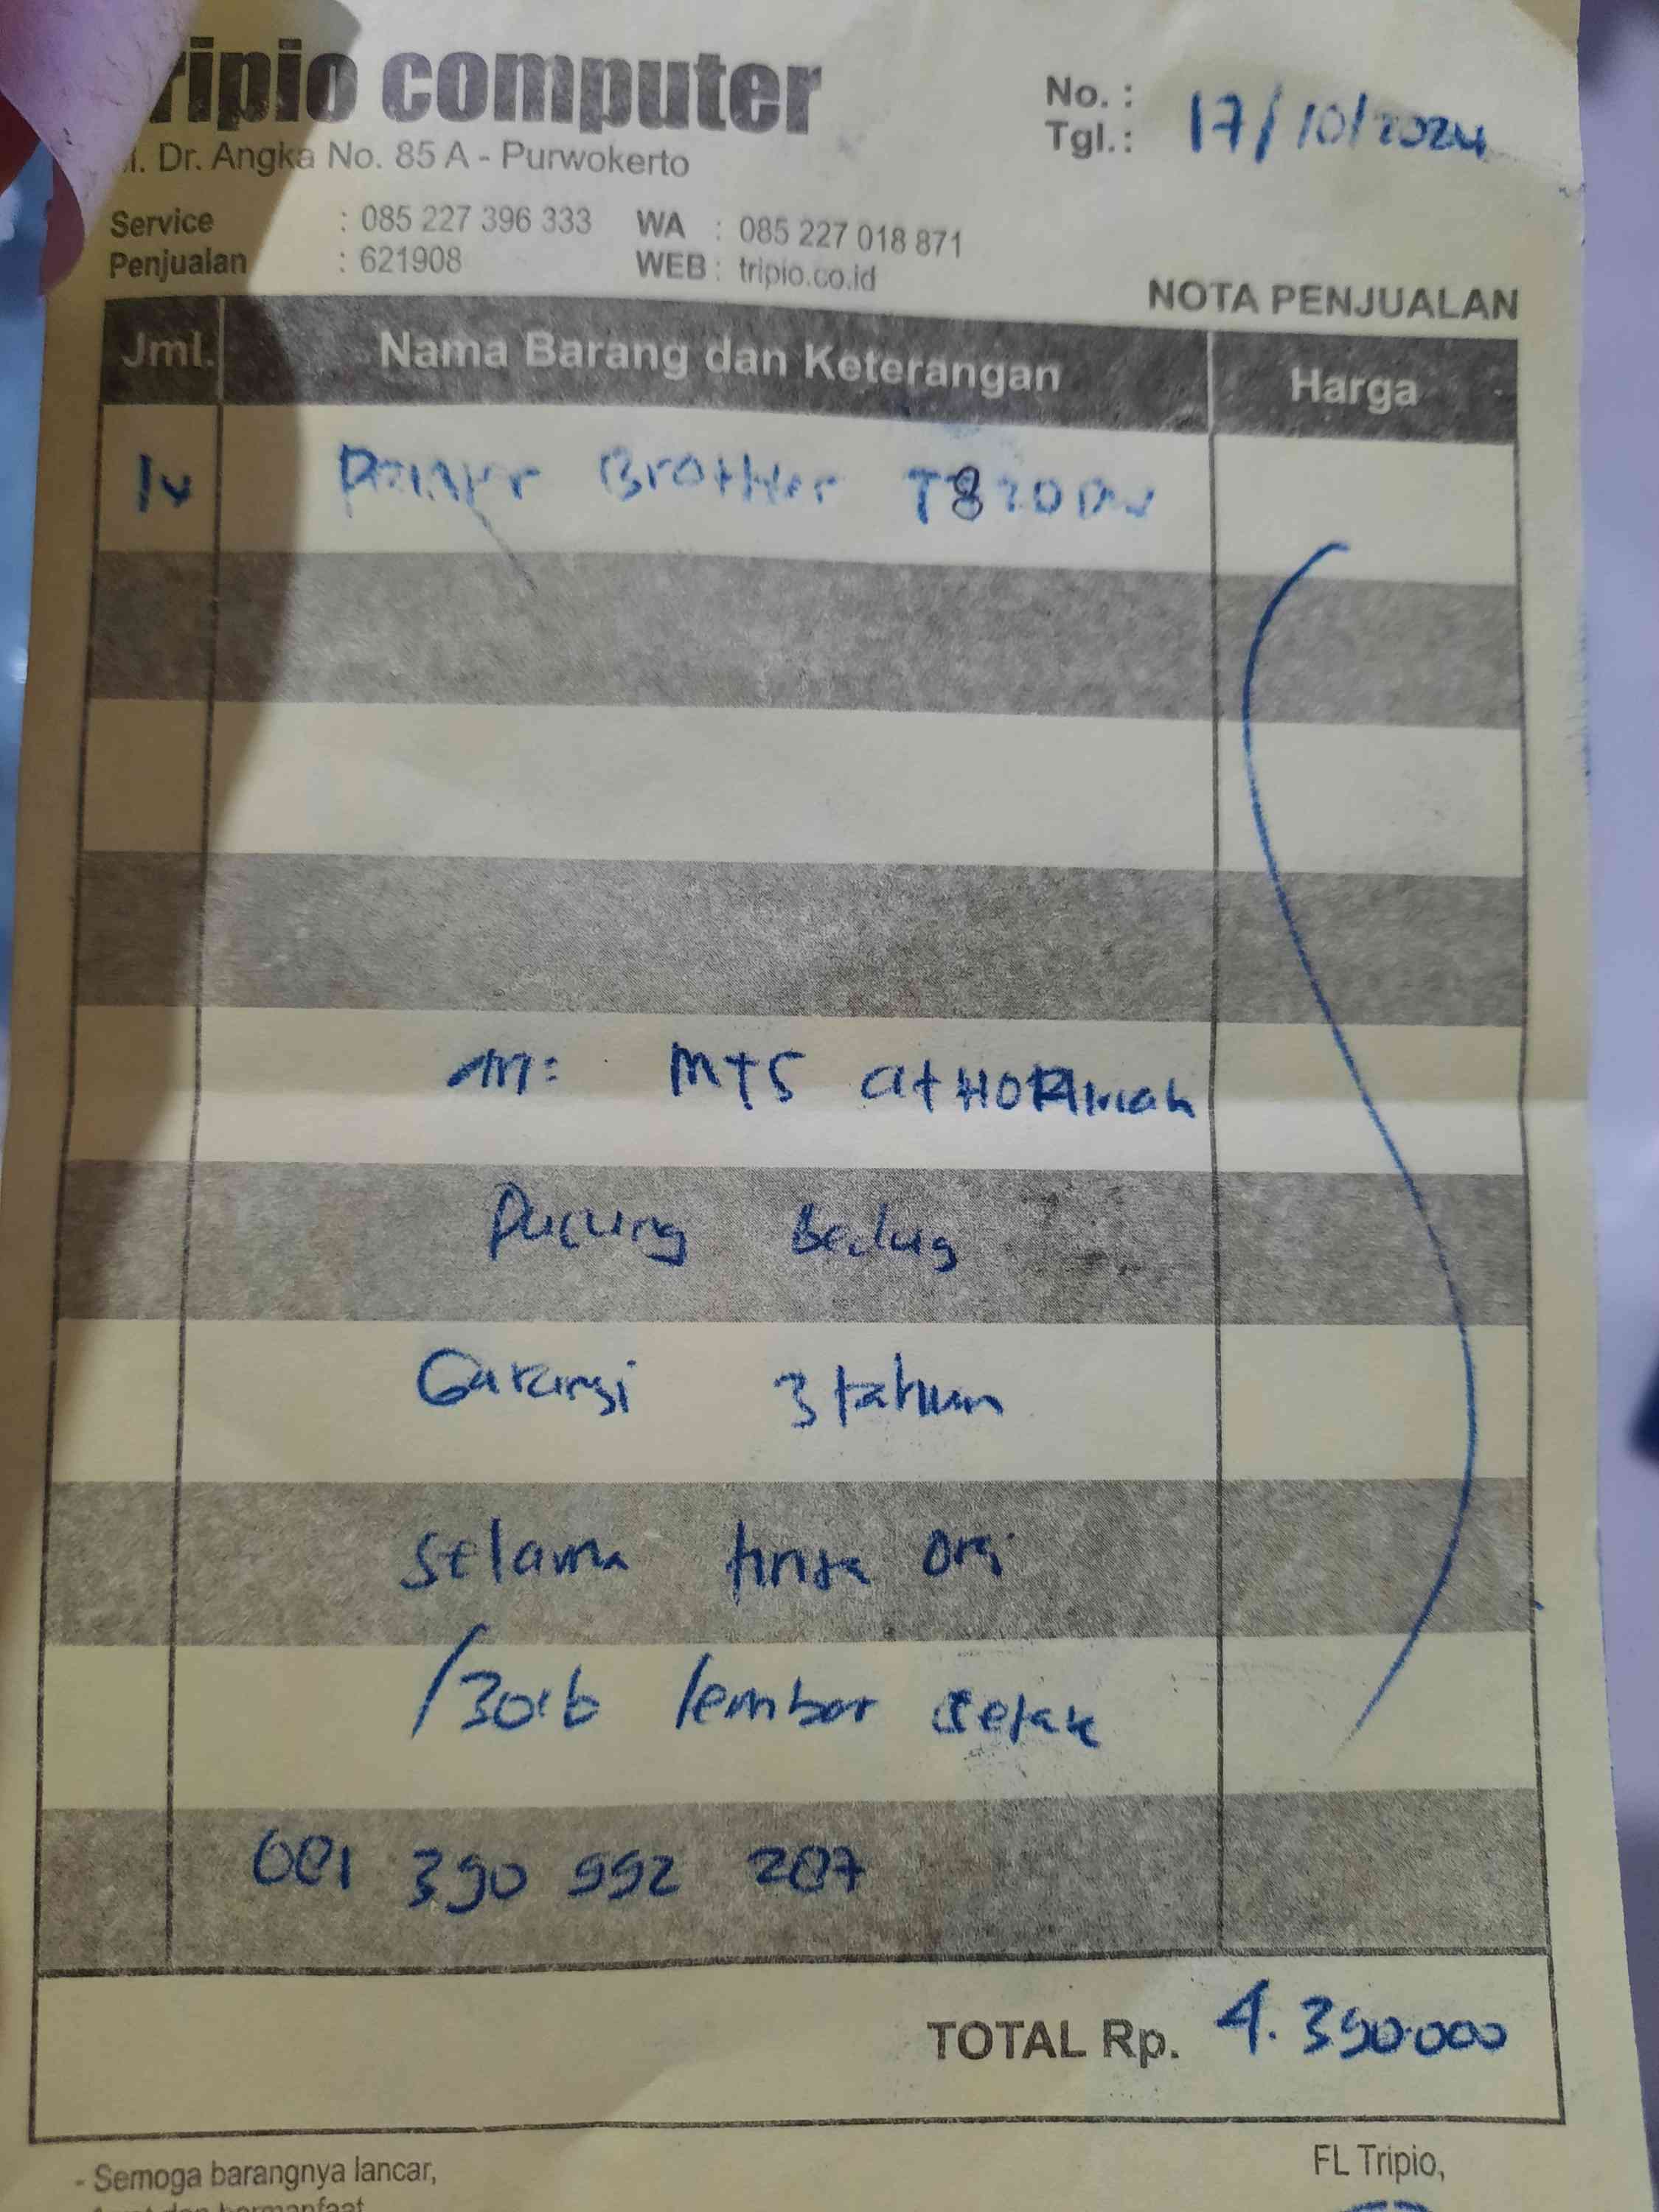 ripio computer
No. :
Tgl. : 17/10/2024
Jl. Dr. Angka No. 85 A - Purwokerto
Service : 085 227 396 333 WA : 085 227 018 871
Penjualan : 621908 WEB : tripio.co.id
NOTA PENJUALAN
Jml. Nama Barang dan Keterangan Harga
1u Brother T820DW
MTS
Pucung Bedug
Garansi 3 tahun
selama tinta ori
/30rb lembar cetak
081 390 992 287
TOTAL Rp. 4.390.000
- Semoga barangnya lancar,
FL Tripio,